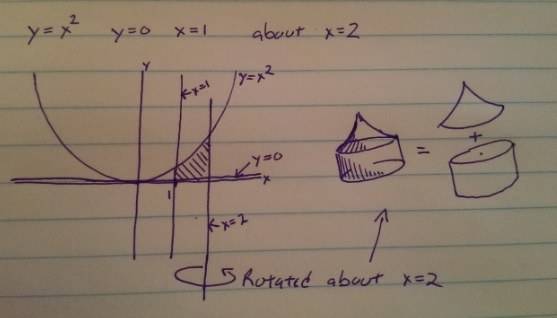 y = x² y = 0 x = 1 about x = 2
y
x=1
y=x²
y=0
x
1
x=2
=
+
Rotated about x=2